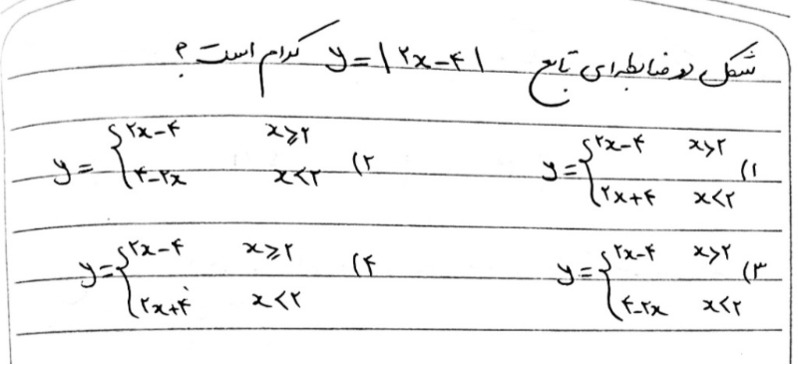 شکل دو ضابطه‌ای تابع y=|۲x-۴| کدام است؟
۱) y={۲x-۴ x>۲
۲x+۴ x<۲
۲) y={۲x-۴ x≥۲
۴-۲x x<۲
۳) y={۲x-۴ x>۲
۴-۲x x<۲
۴) y={۲x-۴ x≥۲
۲x+۴ x<۲